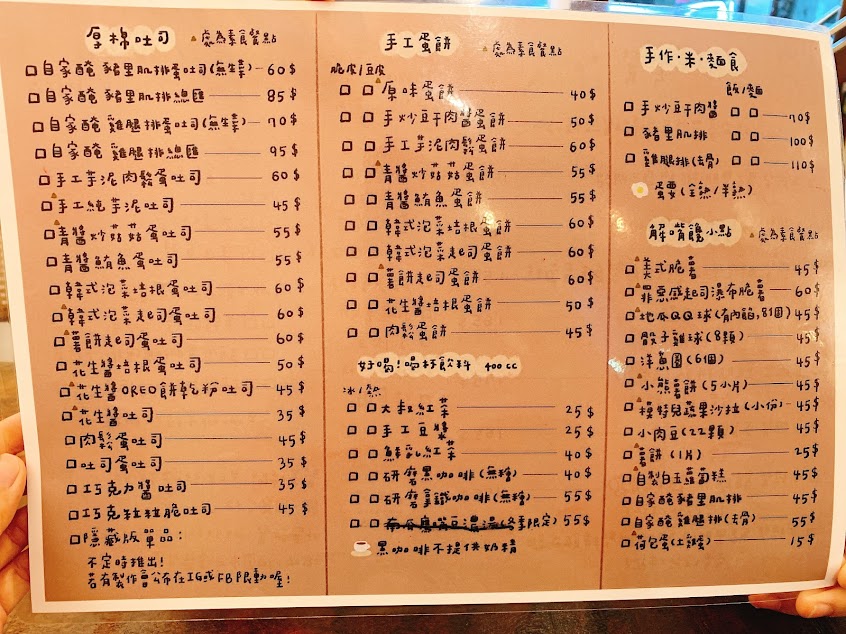 厚棉吐司 ▲處為素食餐點
□自家醃 豬里肌排蛋吐司(無生菜) 60$
□自家醃 豬里肌排總匯 85$
□自家醃 雞腿排蛋吐司(無生菜) 70$
□自家醃 雞腿排總匯 95$
□手工芋泥肉鬆蛋吐司 60$
□手工純芋泥吐司 45$
□青醬炒菇菇蛋吐司 55$
□青醬鮪魚蛋吐司 55$
□韓式泡菜培根蛋吐司 60$
□韓式泡菜起司蛋吐司 60$
□薯餅起司蛋吐司 60$
□花生醬培根蛋吐司 50$
□花生醬OREO餅乾粉吐司 45$
□花生醬吐司 35$
□肉鬆蛋吐司 45$
□吐司蛋吐司 35$
□巧克力醬吐司 35$
□巧克粒粒脆吐司 45$
□隱藏版單品:
不定時推出!
若有製作會公布在IG或FB限動喔!
手工蛋餅 ▲處為素食餐點
脆皮/豆皮
□ □ 原味蛋餅 40$
□ □ 手炒豆干肉醬蛋餅 50$
□ □ 手工芋泥肉鬆蛋餅 60$
□ □ 青醬炒菇菇蛋餅 55$
□ □ 青醬鮪魚蛋餅 55$
□ □ 韓式泡菜培根蛋餅 60$
□ □ 韓式泡菜起司蛋餅 60$
□ □ 薯餅起司蛋餅 55$
□ □ 花生醬培根蛋餅 50$
□ □ 肉鬆蛋餅 45$
好喝!喝杯飲料 400cc
冰/熱
□ □ 大叔紅茶 25$
□ □ 手工豆漿 25$
□ □ 鮮乳紅茶 40$
□ □ 研磨黑咖啡(無糖) 40$
□ □ 研磨拿鐵咖啡(無糖) 55$
□ □ (冬季限定) 55$
黑咖啡不提供奶精
手作·米·麵食
飯/麵
□ 手炒豆干肉醬 □ □ 70$
□ 豬里肌排 □ □ 100$
□ 雞腿排(去骨) □ □ 110$
蛋要(全熟/半熟)
解嘴饞小點 ▲處為素食餐點
□美式脆薯 45$
□罪惡感起司瀑布脆薯 60$
□地瓜QQ球(有內餡,8個) 45$
□骰子雞球(8顆) 45$
□洋蔥圈(6個) 45$
□小熊薯餅(5小片) 45$
□模特兒蔬果沙拉(小份) 45$
□小肉豆(22顆) 45$
□薯餅(1片) 25$
□自製白玉蘿蔔糕 45$
□自家醃豬里肌排 45$
□自家醃雞腿排(去骨) 55$
□荷包蛋(土雞蛋) 15$